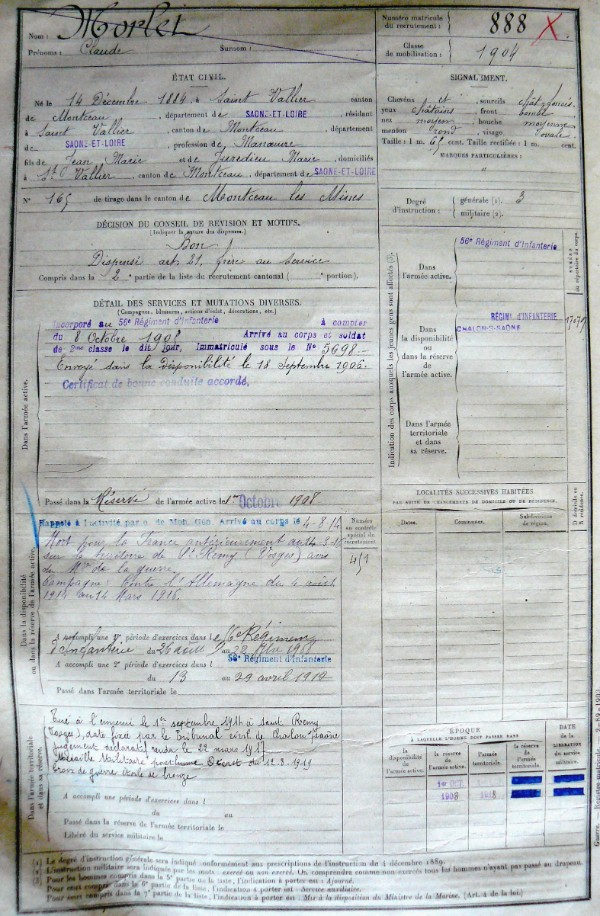 Nom : Morlet
Prénoms : Claude Surnom :
Numéro matricule du recrutement : 888 X
Classe de mobilisation : 1904
ÉTAT CIVIL.
Né le 14 Décembre 1884 à Saint Vallier canton
de Montceau, département de SAONE-ET-LOIRE, résidant
à Saint Vallier, canton de Montceau, département
SAONE-ET-LOIRE, profession de Manœuvre
fils de Jean Marie et de Marie, domiciliés
à St Vallier, canton de Montceau, département de SAONE-ET-LOIRE
N° 165 de tirage dans le canton de Montceau les Mines
SIGNALEMENT.
Cheveux et sourcils
yeux châtains, front
nez moyen, bouche moyenne
menton rond, visage ovale
Taille : 1 m. 65 cent. Taille rectifiée : 1 m. cent.
MARQUES PARTICULIÈRES :
Degré d'instruction : générale (1). 3
militaire (2).
DÉCISION DU CONSEIL DE REVISION ET MOTIFS.
(Indiquer la nature des dispenses.)
Bon
Dispensé art. 21, frère au service
Compris dans la 2e partie de la liste du recrutement cantonal ( portion).
DÉTAIL DES SERVICES ET MUTATIONS DIVERSES.
(Campagnes, blessures, actions d'éclat, décorations, etc.)
Incorporé au 56e Régiment d'Infanterie à compter
du 8 Octobre Arrivé au corps et soldat
de 2ème classe le dit jour. Immatriculé sous le N° 5698.
Envoyé dans la Disponibilité le 18 Septembre 1906.
Certificat de bonne conduite accordé.
Dans l'armée active.
Passé dans la Réserve de l'armée active le 1er Octobre 1908
Indication des corps auxquels les jeunes gens sont affectés
NUMÉRO
Dans l'armée active.
56e Régiment d'Infanterie
Dans la disponibilité ou dans la réserve de l'armée active.
RÉGIMENT D'INFANTERIE
CHALON-S-SAÔNE
Dans l'armée territoriale et dans sa réserve.
LOCALITÉS SUCCESSIVES HABITÉES
PAR SUITE DE CHANGEMENT DE DOMICILE OU DE RÉSIDENCE.
Dates. Communes. Subdivisions de région.
D domicile ou R résidence.
Dans la disponibilité ou dans la réserve de l'armée active.
Rappelé à l'activité Arrivé au corps le 4-8-14
Mort pour la France antérieurement au 14-3-16
sur le territoire de St Rémy (Vosges) avis
du Mre de la guerre.
Campagne : Contre l'Allemagne du 4 août
1914 au 14 Mars 1916.
Numéro au contrôle spécial du recrutement.
A accompli une 1re période d'exercices dans le 56e Régiment
d'Infanterie du 26 août au 22 1908
A accompli une 2e période d'exercices dans l 56e Régiment d'Infanterie
du 13 au 29 avril 1912
Passé dans l'armée territoriale le
Dans l'armée territoriale et dans sa réserve.
Tué à l'ennemi le 1er septembre 1914 à Saint Rémy
(Vosges), date fixée par le Tribunal civil de
jugement déclaratif rendu le 22 mars 1917
Médaille Militaire posthume Décret du 12.8.1919
Croix de guerre étoile de bronze
A accompli une période d'exercices dans l
du au
Passé dans la réserve de l'armée territoriale le
Libéré du service militaire le
ÉPOQUE
À LAQUELLE L'HOMME DOIT PASSER DANS
la disponibilité de l'armée active. la réserve de l'armée active. l'armée territoriale. la réserve de l'armée territoriale.
DATE de la LIBÉRATION du service militaire.
1er OCT.
1908 1918
(1) Le degré d'instruction générale sera indiqué conformément aux prescriptions de l'Instruction du 4 décembre 1889.